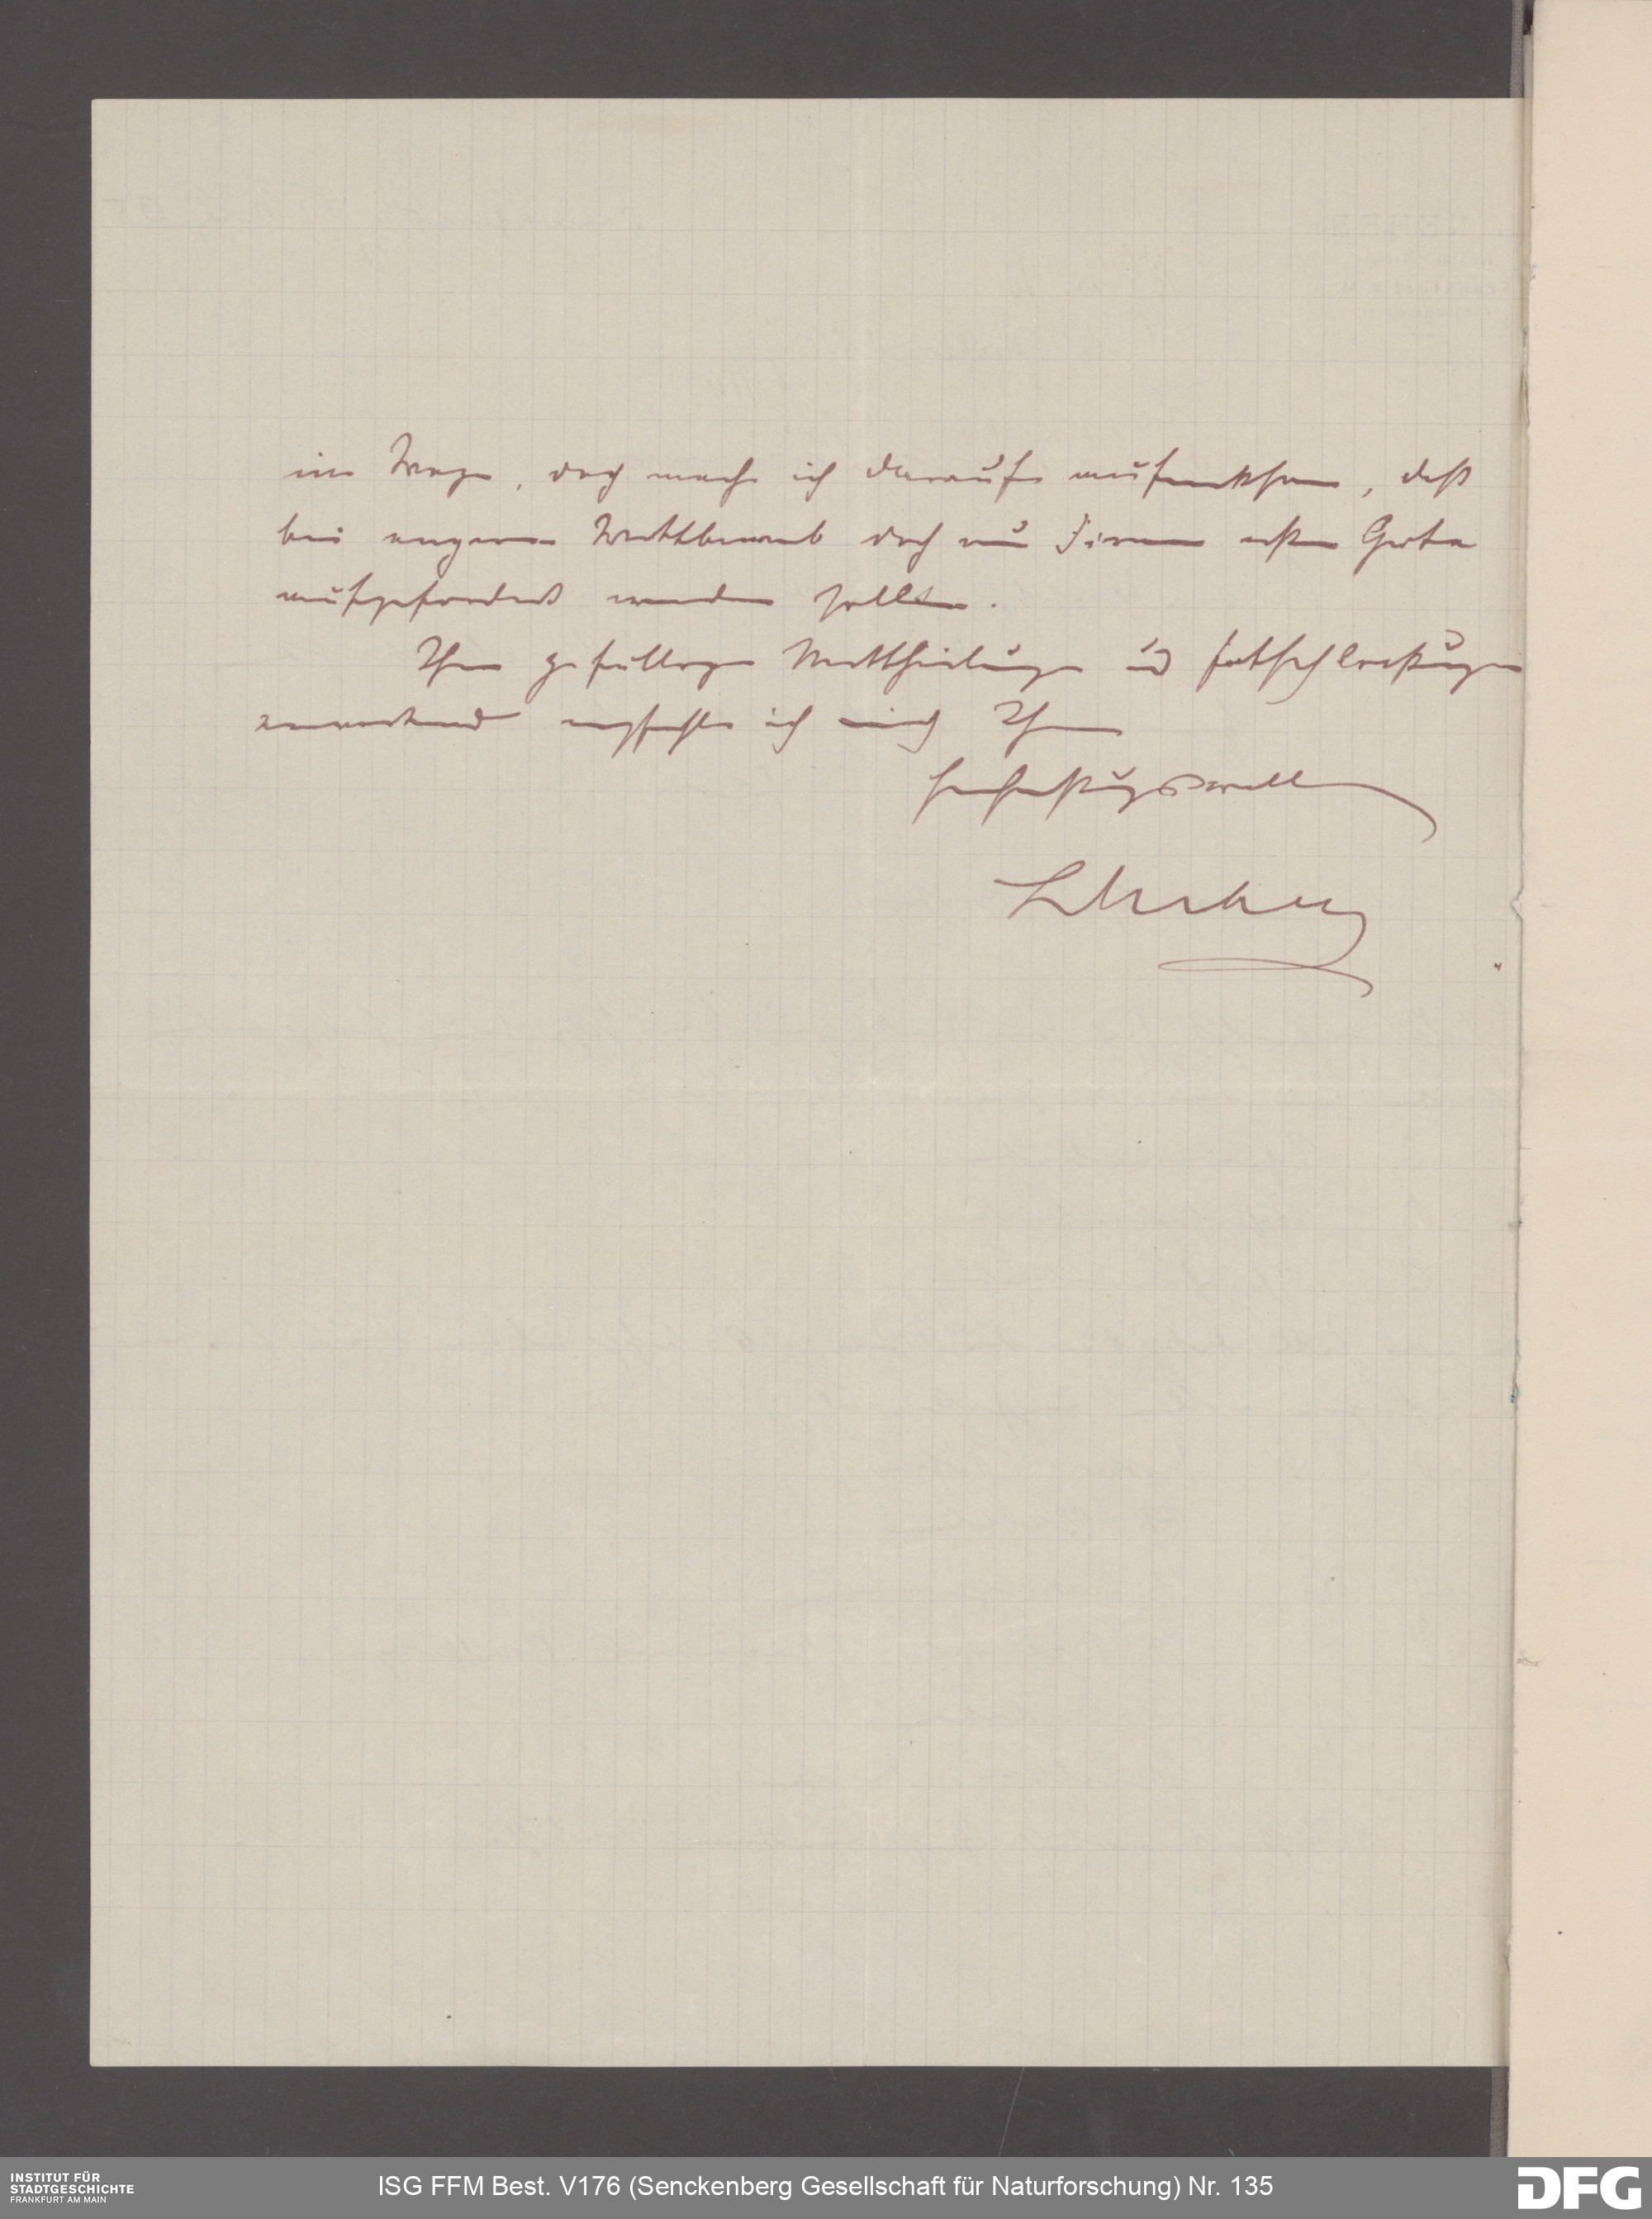 im Wege, doch mache ich darauf aufmerksam, daß
bei engerem Wettbewerb doch nur Firmen erster Güte
aufgefordert werden sollten.
Ihren gefälligen Mittheilungen und Entschließungen
erwartend empfehle ich mich Ihnen
hochachtungsvoll
INSTITUT FÜR
STADTGESCHICHTE
FRANKFURT AM MAIN
ISG FFM Best. V176 (Senckenberg Gesellschaft für Naturforschung) Nr. 135
DFG